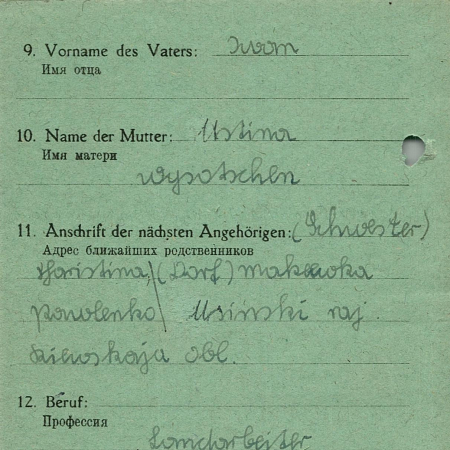 9. Vorname des Vaters: Iwan
Имя отца
10. Name der Mutter: Ustina
Имя матери
wysotschen
11. Anschrift der nächsten Angehörigen: (Schwester)
Адрес ближайших родственников
Haristina, (Dorf)
Usinski raj.
Kiewskaja obl.
12. Beruf:
Профессия
Landarbeiter